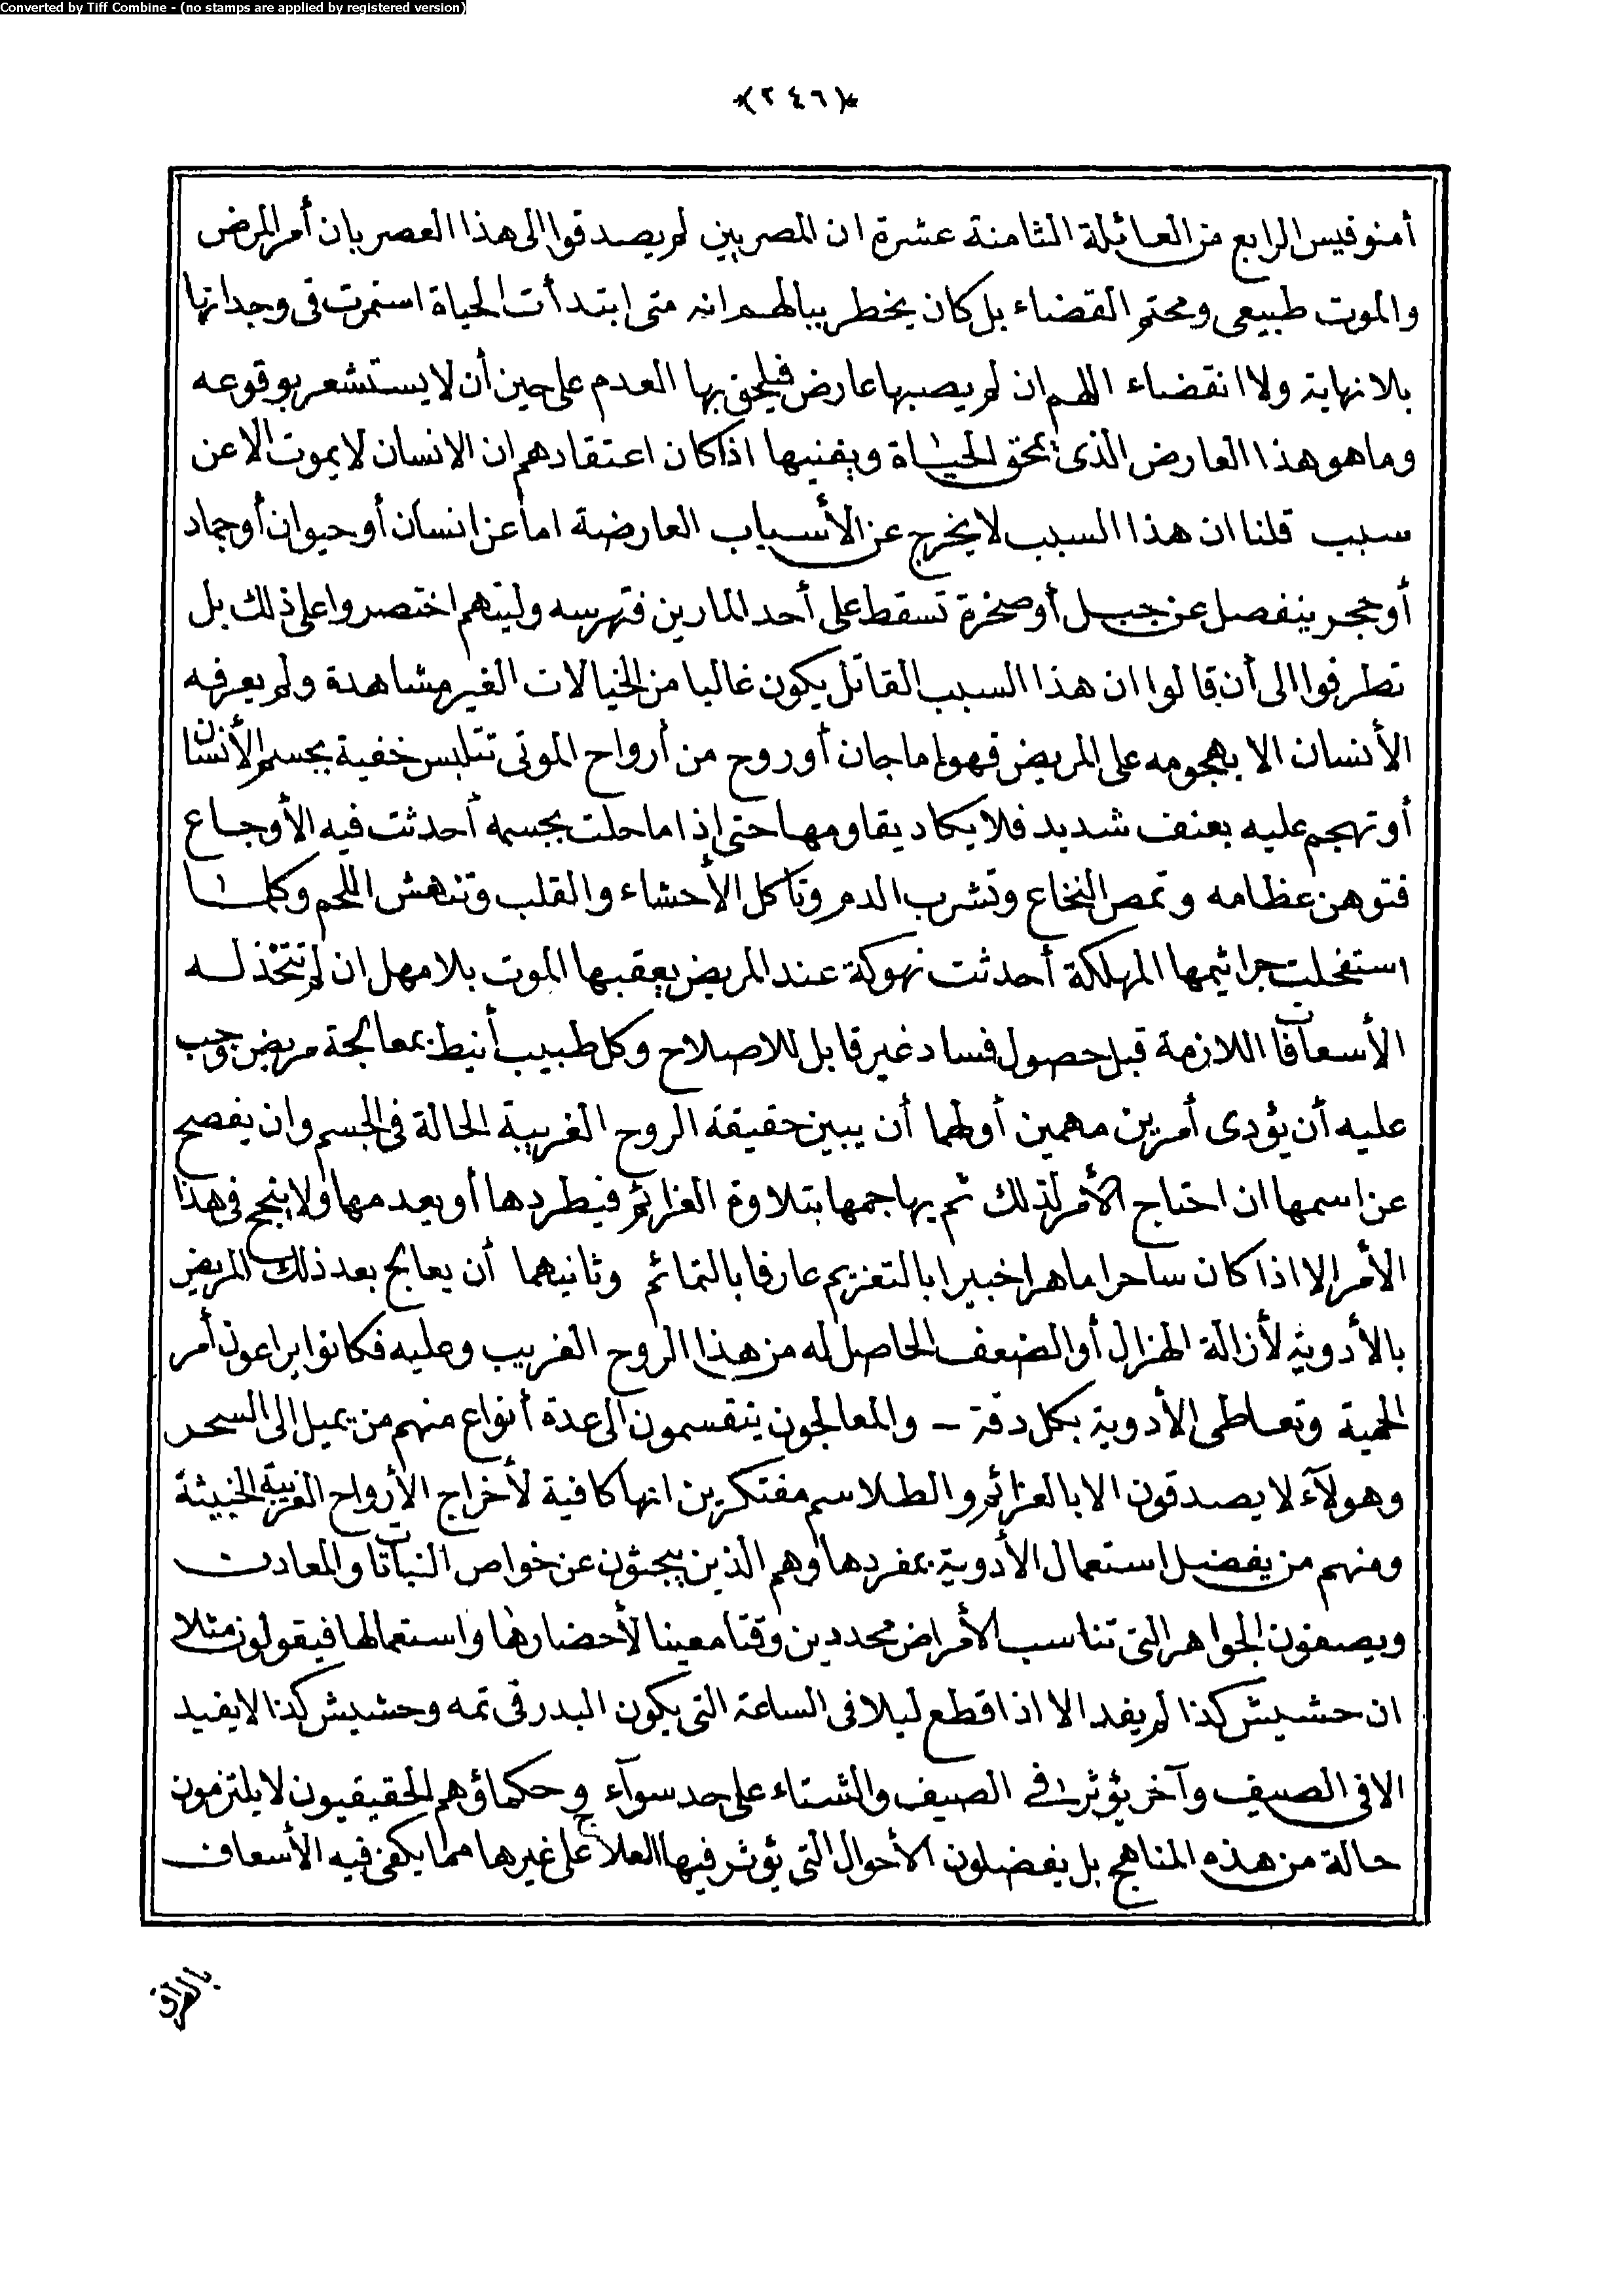 Converted by Tiff Combine - (no stamps are applied by registered version)
*(٢٤٦)*
أمنوفيس الرابع من العائلة الثامنة عشرة ان المصريين لم يصدقوا الى هذا العصر بان أمر المرض
والموت طبيعى ومحتم القضاء بل كان يخطر ببالهم انه متى ابتدأت الحياة استمرت فى وجدانها
بلا نهاية ولا انقضاء اللهم ان لم يصبها عارض فيلحق بها العدم على حين أن لا يستشعر بوقوعه
وما هو هذا العارض الذى يمحق الحياة ويفنيها اذا كان اعتقادهم ان الانسان لا يموت الا عن
سبب قلنا ان هذا السبب لا يخرج عن الأسباب العارضة اما عن انسان أو حيوان أو جماد
أو حجر ينفصل عن جبل أو صخرة تسقط على أحد المارين فتهرسه وليتهم اختصروا على ذلك بل
تطرفوا الى أن قالوا ان هذا السبب القاتل يكون غالبا من الخيالات الغير مشاهدة ولم يعرفه
الأنسان الا بهجومه على المريض فهو اما جان أو روح من أرواح الموتى تتلبس خفية بجسم الأنسان
أو تهجم عليه بعنف شديد فلا يكاد يقاومها حتى إذا ما حلت بجسمه أحدثت فيه الأوجاع
فتوهن عظامه وتمص النخاع وتشرب الدم وتاكل الأحشاء والقلب وتنهش اللحم وكلما
استفحلت جراثيمها المهلكة أحدثت نهوكة عند المريض يعقبها الموت بلا مهل ان لم تتخذ له
الأسعافات اللازمة قبل حصول فساد غير قابل للاصلاح وكل طبيب أنيط بمعالجة مريض وجب
عليه أن يؤدى أمرين مهمين أولهما أن يبين حقيقة الروح الغريبة الحالة فى الجسم وان يفصح
عن اسمها ان احتاج الأمر لذلك ثم يهاجمها بتلاوة العزائم فيطردها أو يعدمها ولا ينجح فى هذا
الأمر الا اذا كان ساحرا ماهرا خبيرا بالتعزيم عارفا بالتمائم وثانيهما أن يعالج بعد ذلك المريض
بالأدوية لأزالة الهزال أو الضعف الحاصل له من هذا الروح الغريب وعليه فكانوا يراعون أمر
الحمية وتعاطى الأدوية بكل دقة – والمعالجون ينقسمون الى عدة أنواع منهم من يميل الى السحر
وهولآء لا يصدقون الا بالعزائم والطلاسم مفتكرين انها كافية لأخراج الأرواح الغريبة الخبيثة
ومنهم من يفضل استعمال الأدوية بمفردها وهم الذين يبحثون عن خواص النباتات والمعادن
ويصفون الجواهر التى تناسب الأمراض محددين وقتا معينا لأحضارها واستعمالها فيقولون مثلا
ان حشيش كذا لم يفد الا اذا قطع ليلا فى الساعة التى يكون البدر فى تمه وحشيش كذا لا يفيد
الا فى الصيف وآخر يؤثر فى الصيف والشتاء على حد سوآء وحكماؤهم الحقيقيون لا يلتزمون
حالة من هذه المناهج بل يفضلون الأحوال التى يؤثر فيها العلاج على غيرها مما يكفى فيه الأسعاف